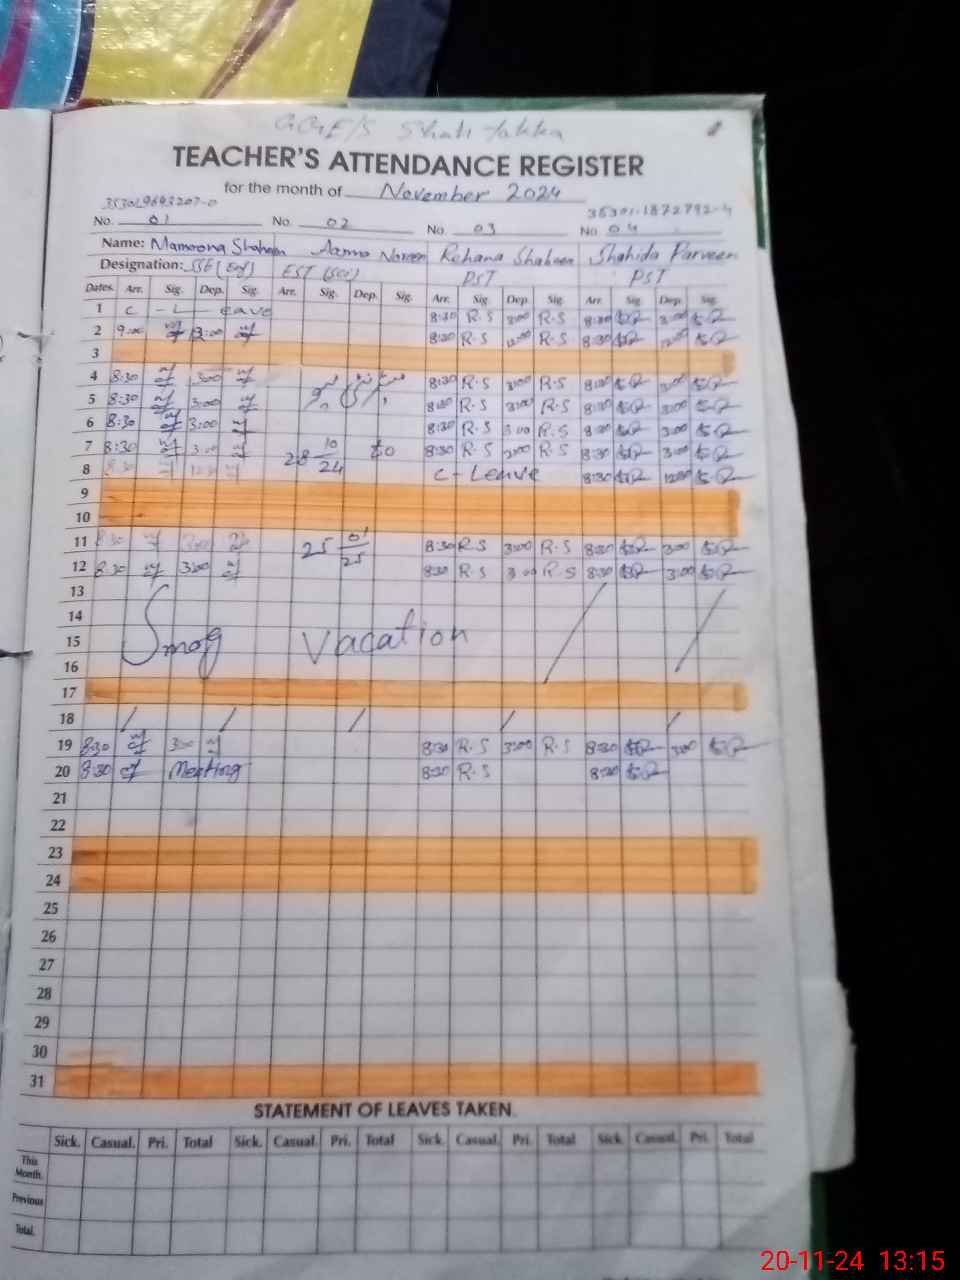 GGE/S Shah
TEACHER'S ATTENDANCE REGISTER
for the month of November 2024
No. 01 No. 02 No. 03 No 04
Name: Mamoona Shaheen Rehana Shaheen Shahida Parveen
Designation: SSE EST PST PST
Dates. Arr. Sig. Dep. Sig. Arr. Sig. Dep. Sig. Arr. Sig Dep. Sig. Arr Sig Dep. Sig.
1 C - L - eave 8:30 R.S 3:00 R.S 8:30 3:00
2 9:00 8:30 R.S 12:00 R.S 8:30 12:00
3
4 8:30 3:00 8:30 R.S 3:00 R.S 8:30 3:00
5 8:30 3:00 8:30 R.S 3:00 R.S 8:30 3:00
6 8:30 3:00 8:30 R.S 3:00 R.S 8:30 3:00
7 8:30 3:00 28 10/24 to 8:30 R.S 3:00 R.S 8:30 3:00
8 8:30 C - Leave 8:30 12:00
9
10
11 8:30 3:00 25 01/25 8:30 R.S 3:00 R.S 8:30 3:00
12 8:30 3:00 8:30 R.S 3:00 R.S 8:30 3:00
13
14
15 Smog Vacation
16
17
18
19 8:30 3:00 8:30 R.S 3:00 R.S 8:30 3:00
20 8:30 Meeting 8:30 R.S 8:30
21
22
23
24
25
26
27
28
29
30
31
STATEMENT OF LEAVES TAKEN.
Sick. Casual. Pri. Total Sick. Casual. Pri. Total Sick. Casual. Pri. Total Sick. Casual. Pri. Total
This Month.
Previous
Total.
20-11-24 13:15